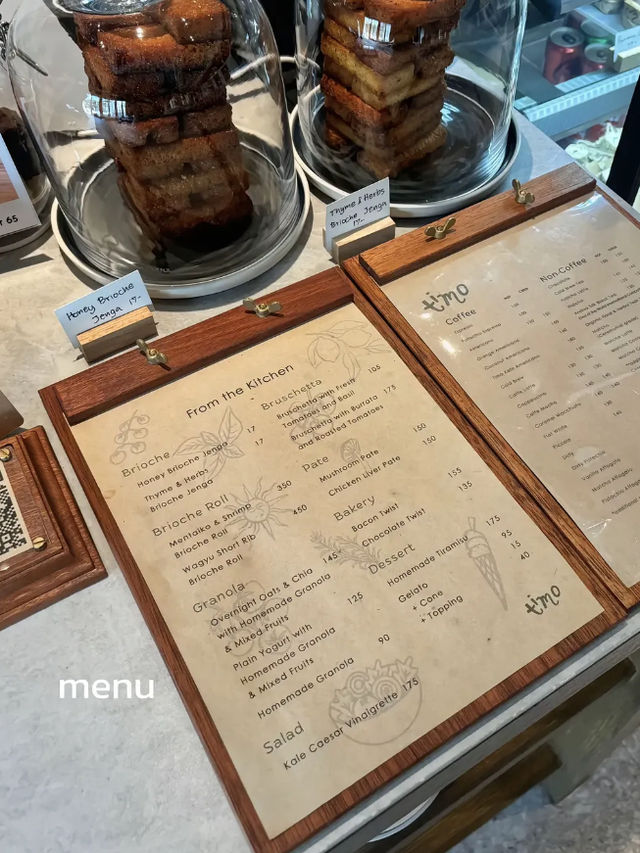 65
Thyme & Herbs
Brioche Jenga
17.-
Honey Brioche
Jenga 17.-
From the Kitchen
Brioche
Honey Brioche Jenga 17
Thyme & Herbs 17
Brioche Jenga
Brioche Roll
Mentaiko & Shrimp 350
Brioche Roll
Wagyu Short Rib 450
Brioche Roll
Granola
Overnight Oats & Chia 145
with Homemade Granola
& Mixed Fruits
Plain Yogurt with 125
Homemade Granola
& Mixed Fruits
Homemade Granola 90
Salad
Kale Caesar Vinaigrette 175
Bruschetta
Bruschetta with Fresh 105
Tomatoes and Basil
Bruschetta with Burrata 175
and Roasted Tomatoes
Pate
Mushroom Pate 150
Chicken Liver Pate 150
Bakery
Bacon Twist 155
Chocolate Twist 135
Dessert
Homemade Tiramisu 175
Gelato 95
+ Cone 15
+ Topping 40
timo
timo
Coffee
Espresso
Americano
Orange Americano
Coconut Americano
Cold Brew
Caffe Latte
Cappuccino
Caffe Mocha
Caramel Macchiato
Flat White
Piccolo
Dirty
Dirty Pistachio
Vanilla Affogato
Non-Coffee
menu